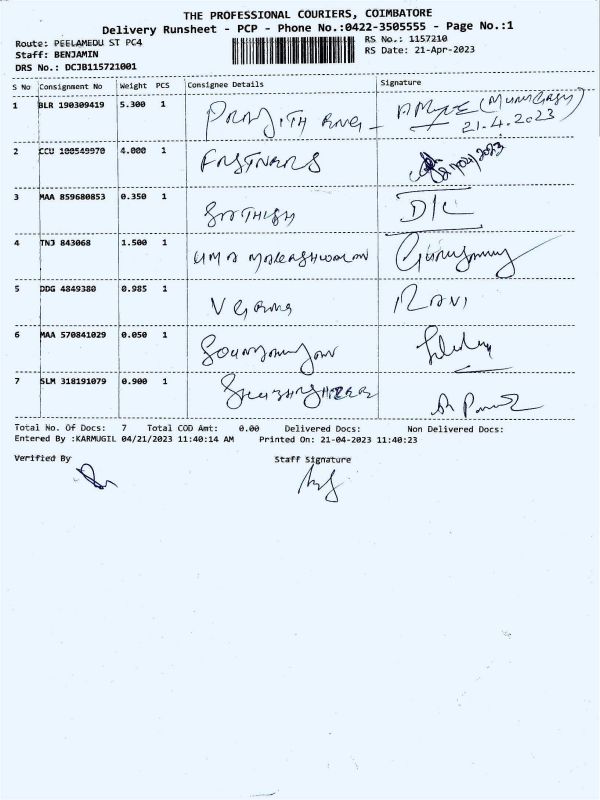 THE PROFESSIONAL COURIERS, COIMBATORE
Delivery Runsheet - PCP - Phone No.:0422-3505555 - Page No.:1
Route: PEELAMEDU ST PC4 RS No.: 1157210
Staff: BENJAMIN RS Date: 21-Apr-2023
DRS No.: DCJB115721001
S No Consignment No Weight PCS Consignee Details Signature
1 BLR 190309419 5.300 1
21.4.2023
2 CCU 100549970 4.000 1 FASTNERS
3 MAA 859680853 0.350 1 SATHISH D/C
4 TNJ 843068 1.500 1 UMA MAHESHWARAN
5 DDG 4849380 0.985 1 RAVI
6 MAA 570841029 0.050 1
7 SLM 318191079 0.900 1
Total No. Of Docs: 7 Total COD Amt: 0.00 Delivered Docs: Non Delivered Docs:
Entered By :KARMUGIL 04/21/2023 11:40:14 AM Printed On: 21-04-2023 11:40:23
Verified By Staff Signature